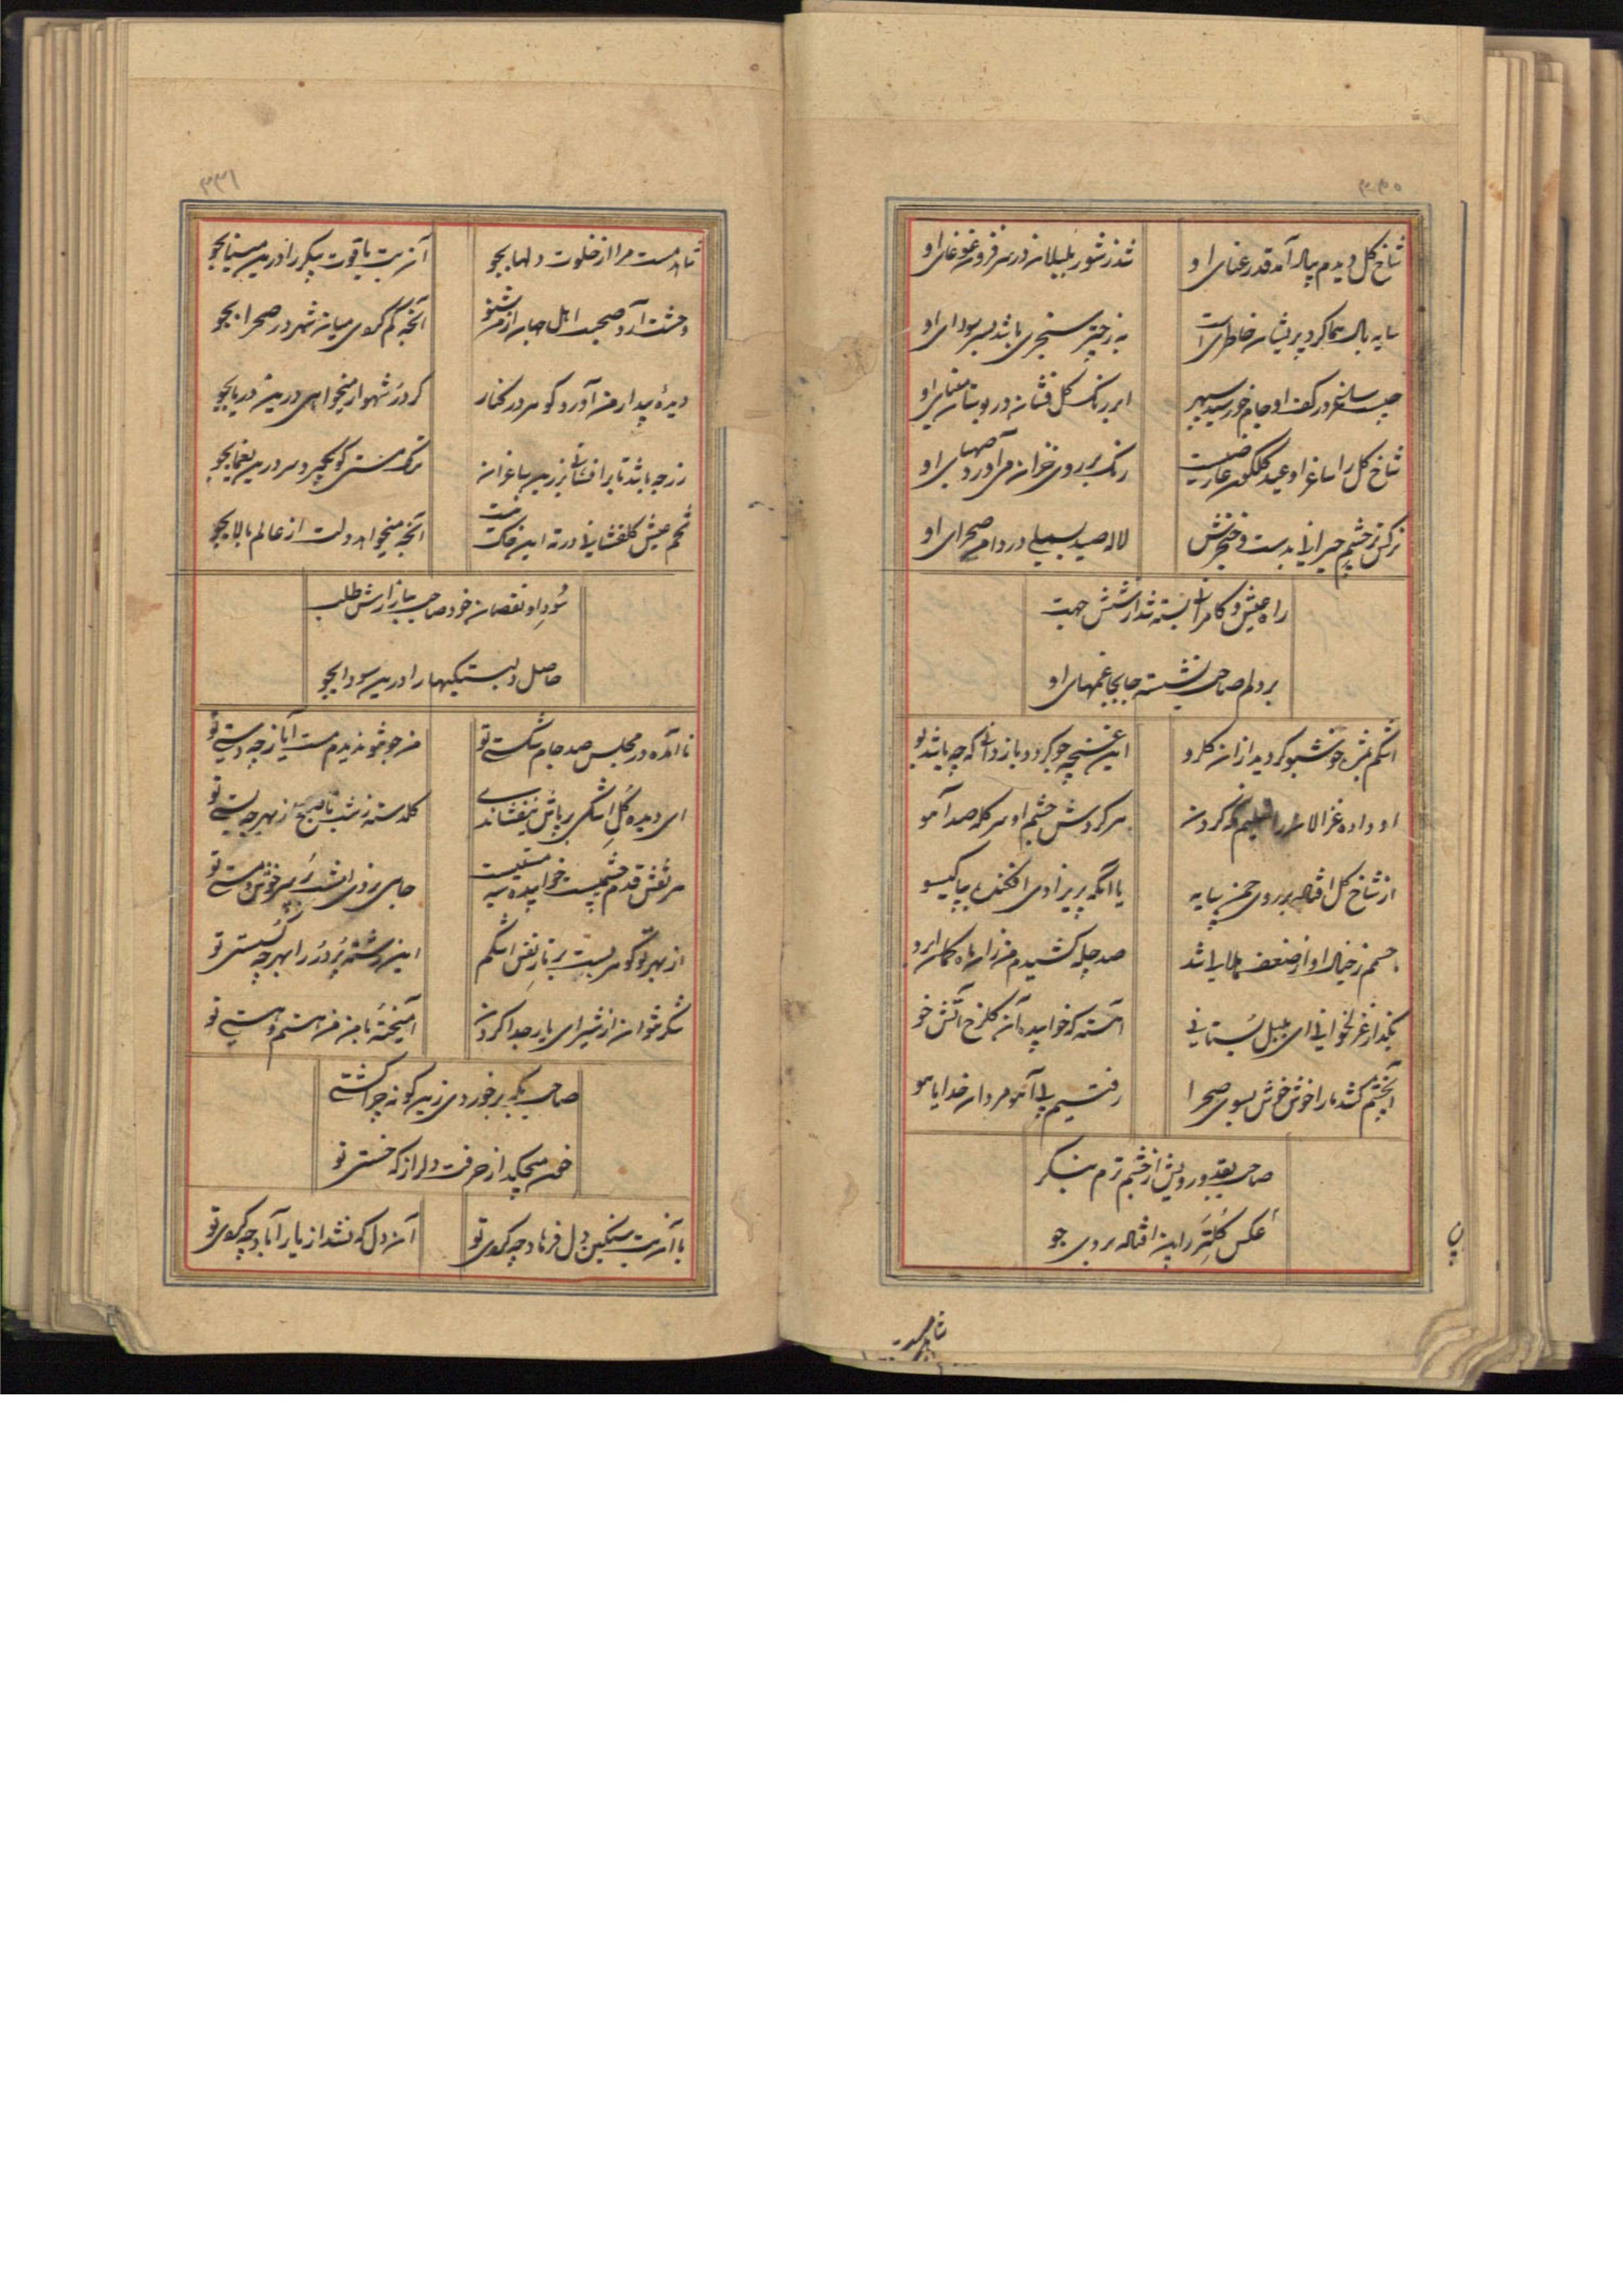 شاخ گل دیدم پیاله آمد قد رعنای او
شد ز شور بلبلان در سر فزون غوغای او
سایه بال هما گرد پریشان خاطریست
به ز چتر سنجری باشد بسر سودای او
ساغر در کف او جام خورشید سپهر
ابر رنگ گل فشان در بوستان مینای او
شاخ گل را ساغر او عید گلگون
رنگ بر روی خزان می آورد صهبای او
نرگس تر چشم حیرانی بدست خنجرش
لاله صید بسملی در دامن صحرای او
راه عیش و کامرانی بسته شد از شش جهت
بر دلم صاحب نشسته جابجا غمهای او
اشکم خوشبو گردید از آن گلرو
این غنچه چو گردد باز دانی که چه باشد بو
او داده غزالان را تعلیم نگه کردن
هر گردش چشم او سر کله صد آهو
از شاخ گل افتاده بر روی چمن سایه
یا آنکه پریزادی افکنده بپا گیسو
جسمم ز خیال او از ضعف هلالی شد
صد چله کشیدم من زان ماه کمان ابرو
بگذار غزلخوانی ای بلبل بستانی
آهسته که خوابیده آن گلرخ آتش خو
آن چشم کشد ما را خوش خوش بسوی صحرا
رفتیم پی آهو مردان خدا یاهو
صاحب بقد و رویش از چشم ترم بنگر
عکس گل تر را بین افتاده بروی جو
شاهد مست
۳۳۱
شاهد مست مرا از خلوت دلها بجو
آن بت یاقوت پیکر را درین مینا بجو
وحشت آرد صحبت اهل جهان از من شنو
آنچه گم کردی میان شهر در صحرا بجو
دیده بیدار من آورد گوهر در کنار
گر در شهوار میخواهی درین دریا بجو
زر چه باشد تا بر افشانی برین باغبان
ترک مستی کو نگیرد سر درین یغما بجو
تخم عیش گلفشانی در ته این خاک نیست
آنچه میخواهد دلت از عالم بالا بجو
سود او نقصان خود صاحب ببازارش طلب
حاصل دلبستگیها را درین سودا بجو
نا آمده در مجلس صد جام شکستی تو
من چو تو ندیدم مست آیا ز چه دستی تو
ای دیده گل اشکی بر پاش نیفشاندی
گلدسته ز شب تا صبح از بهر چه بستی تو
هر نقش قدم چشمیست خوابیده سیه مستیست
جای نروی امشب سرخوشی و مستی تو
از بهر تو گوهر بست بر تار نفس اشکم
این رشته پر در را بهر چه گسستی تو
شکر نتوان از شیر ای یار جدا کردن
آمیخته با من من هستم و هستی تو
صاحب نگه بر خوردی زین گونه چرا گشتی
خون میچکد از حرفت دلرا ز که خستی تو
با آن بت سنگین دل فرهاد چه کردی تو
آن دل که نشد از یار آباد چه کردی تو